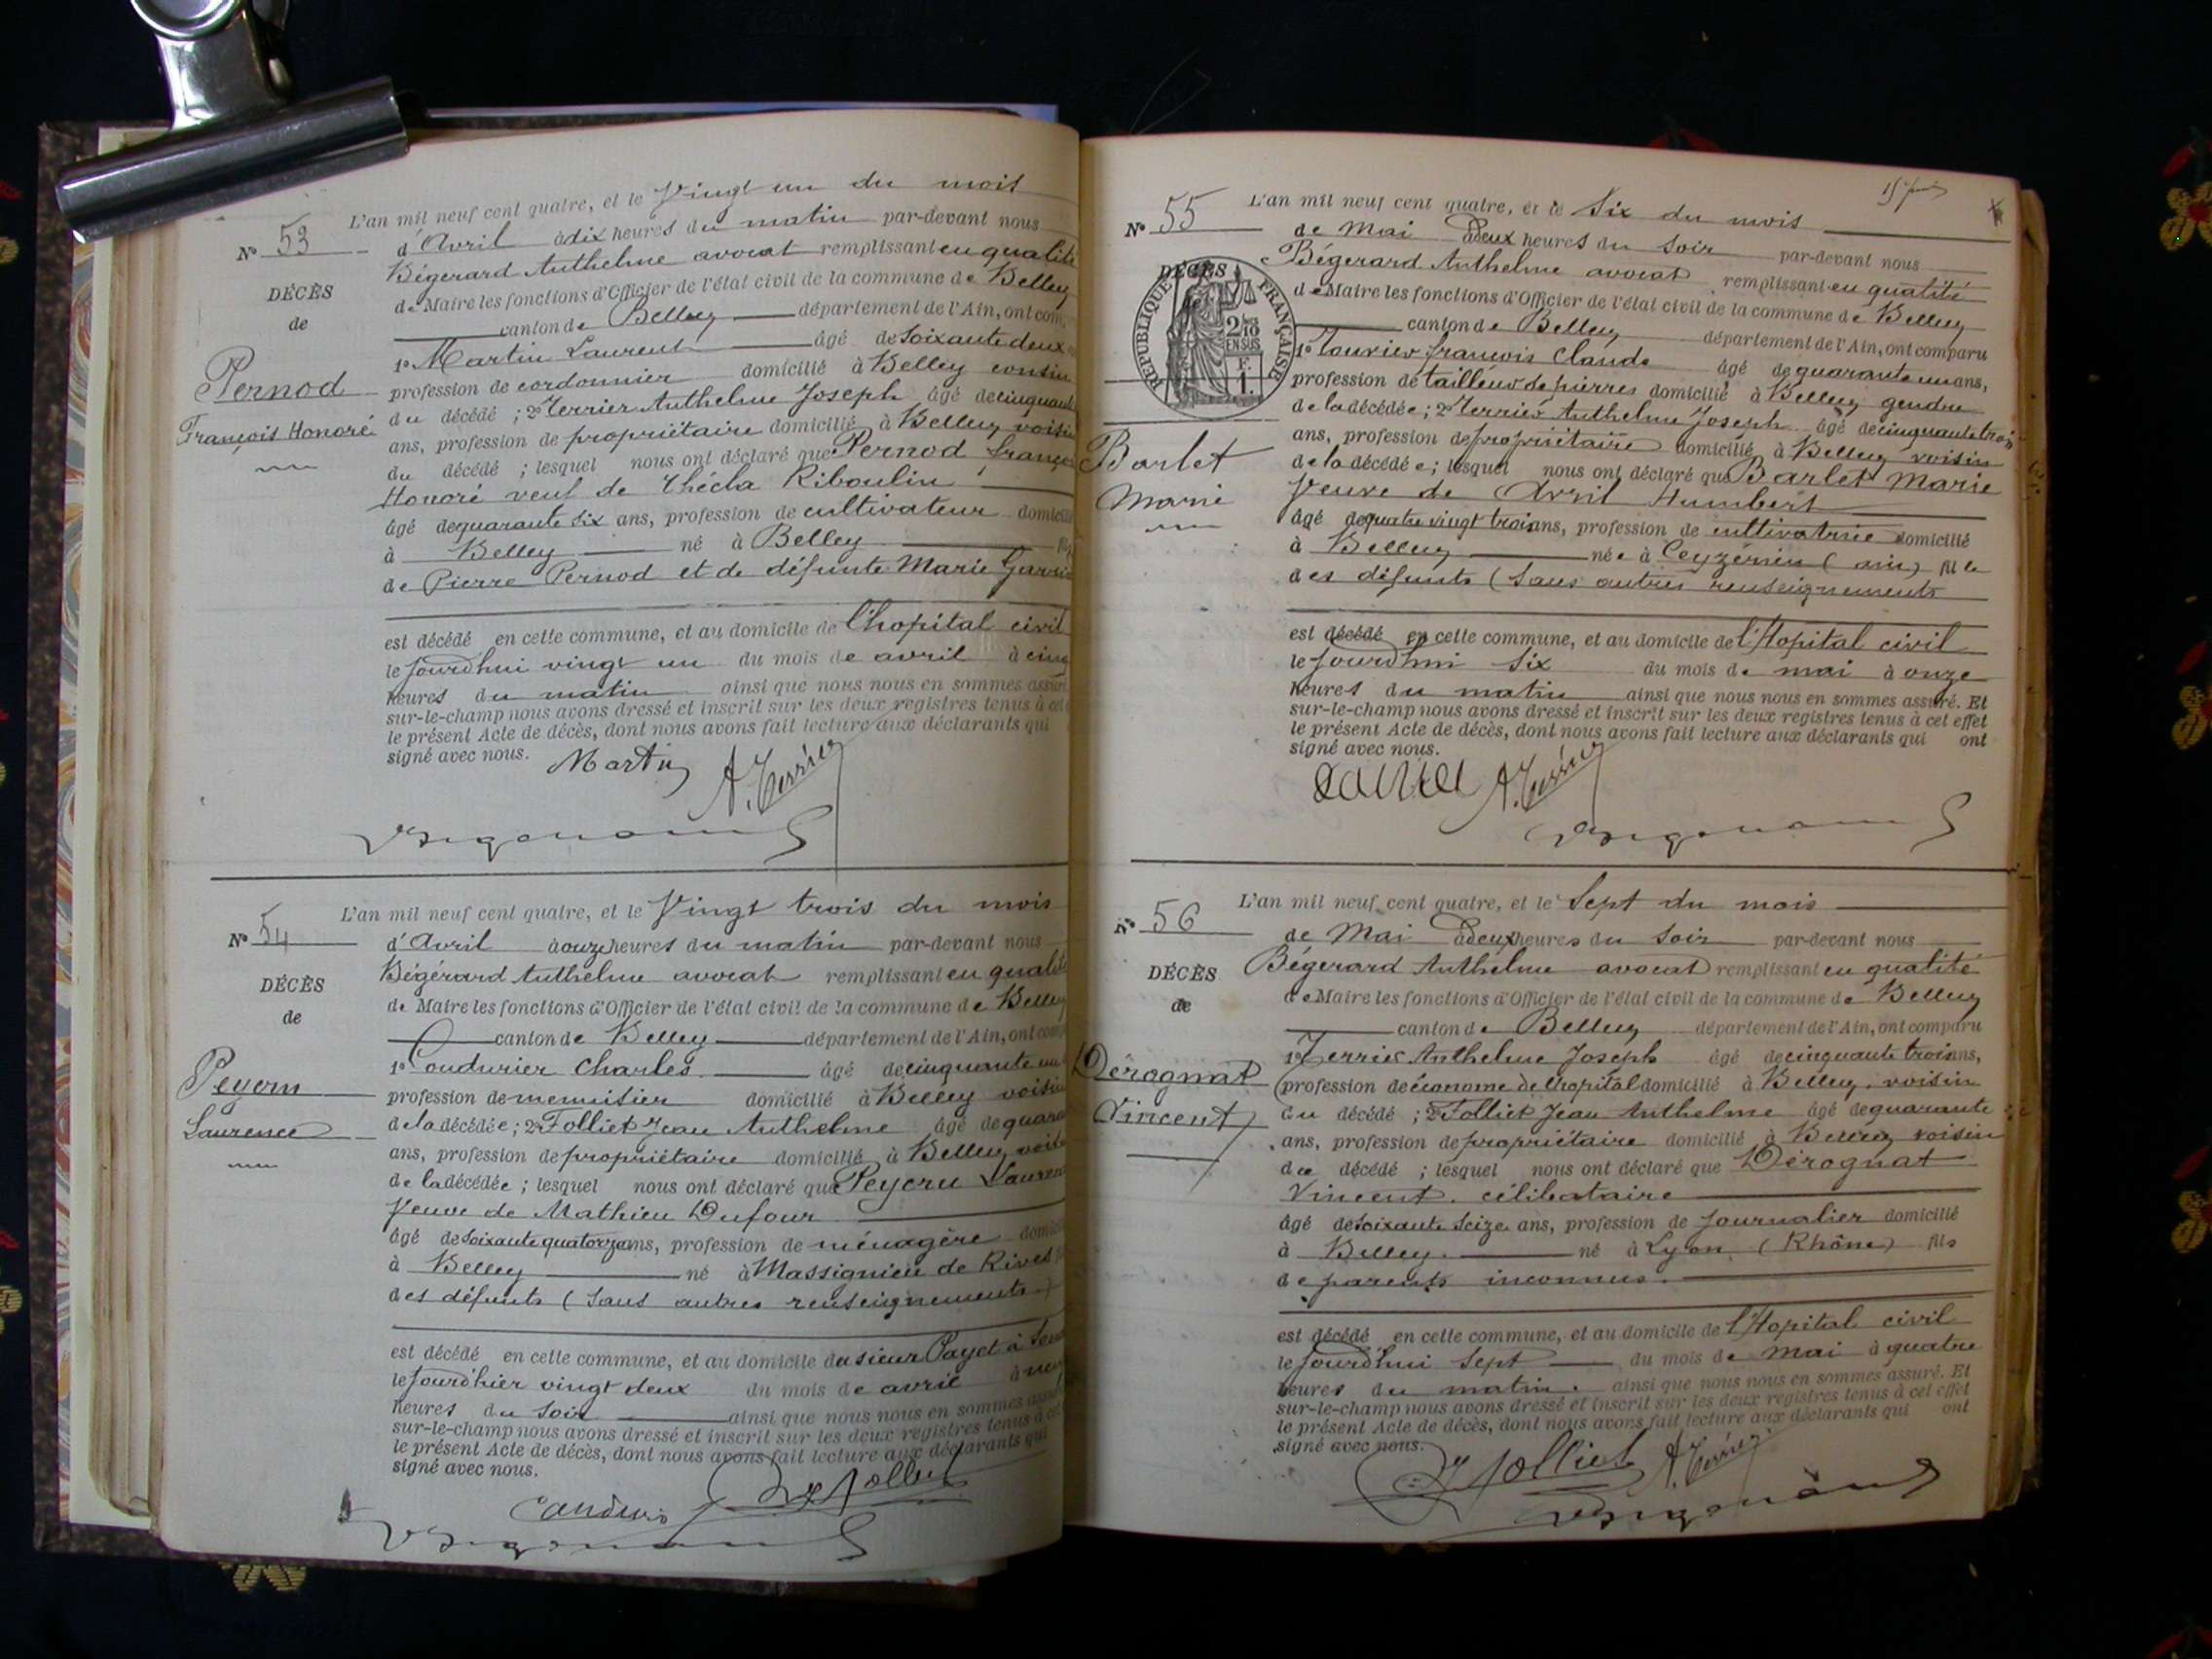 L'an mil neuf cent quatre, et le Vingt un du mois
N° 53
d'Avril à dix heures du matin par-devant nous
Bégerard Anthelme avocat remplissant en qualité
de Maire les fonctions d'Officier de l'état civil de la commune de Belley
DÉCÈS
de
canton de Belley département de l'Ain, ont com
1° Martin Laurent âgé de soixante deux
Pernod
François Honoré
profession de cordonnier domicilié à Belley cousin
du décédé ; 2° Terrier Anthelme Joseph âgé de cinquante
ans, profession de propriétaire domicilié à Belley voisin
du décédé ; lesquel nous ont déclaré que Pernod François
Honoré veuf de Thécla Riboulin
âgé de quarante six ans, profession de cultivateur domicilié
à Belley né à Belley
de Pierre Pernod et de défunte Marie
est décédé en cette commune, et au domicile de l'hopital civil
le jourd'hui vingt un du mois de avril à cinq
heures du matin ainsi que nous nous en sommes assuré
sur-le-champ nous avons dressé et inscrit sur les deux registres tenus à cet
le présent Acte de décès, dont nous avons fait lecture aux déclarants qui
signé avec nous.
Martin A. Terrier
L'an mil neuf cent quatre, et le Vingt trois du mois
N° 54
d'Avril à onze heures du matin par-devant nous
Bégérard Anthelme avocat remplissant en qualité
de Maire les fonctions d'Officier de l'état civil de la commune de Belley
DÉCÈS
de
canton de Belley département de l'Ain, ont comp
1° Coudurier Charles âgé de cinquante un
Peyeru
Laurence
profession de menuisier domicilié à Belley voisin
de la décédée ; 2° Folliet Jean Anthelme âgé de quara
ans, profession de propriétaire domicilié à Belley voisin
de la décédée ; lesquel nous ont déclaré que Peyeru Lauren
Veuve de Mathieu Dufour
âgé de soixante quatorze ans, profession de ménagère domici
à Belley né à Massignieu de Rives
des défunts (sans autres renseignements)
est décédé en cette commune, et au domicile du sieur Payet à
le jourd'hier vingt deux du mois de avril à neuf
heures du soir ainsi que nous nous en sommes assuré
sur-le-champ nous avons dressé et inscrit sur les deux registres tenus à cet
le présent Acte de décès, dont nous avons fait lecture aux déclarants qui
signé avec nous.
Folliet
L'an mil neuf cent quatre, et le Six du mois
N° 55
de Mai à deux heures du soir par-devant nous
Bégerard Anthelme avocat remplissant en qualité
de Maire les fonctions d'Officier de l'état civil de la commune de Belley
DÉCÈS
RÉPUBLIQUE FRANÇAISE
2/10 EN SUS
F. 1
canton de Belley département de l'Ain, ont comparu
1° Tourier françois Claude âgé de quarante un ans,
profession de tailleur de pierres domicilié à Belley gendre
de la décédée ; 2° Terrier Anthelme Joseph âgé de cinquante trois
Barlet
Marie
ans, profession de propriétaire domicilié à Belley voisin
de la décédée ; lesquel nous ont déclaré que Barlet Marie
Veuve de Avril Humbert
âgé de quatre vingt trois ans, profession de cultivatrice domicilié
à Belley née à Ceyzérieu (ain) fille
des défunts (sans autres renseignements
est décédé en cette commune, et au domicile de l'Hopital civil
le jourd'hui six du mois de mai à onze
heures du matin ainsi que nous nous en sommes assuré. Et
sur-le-champ nous avons dressé et inscrit sur les deux registres tenus à cet effet
le présent Acte de décès, dont nous avons fait lecture aux déclarants qui ont
signé avec nous.
A. Terrier
L'an mil neuf cent quatre, et le Sept du mois
N° 56
de Mai à deux heures du soir par-devant nous
Bégerard Anthelme avocat remplissant en qualité
de Maire les fonctions d'Officier de l'état civil de la commune de Belley
DÉCÈS
de
canton de Belley département de l'Ain, ont comparu
1° Terrier Anthelme Joseph âgé de cinquante trois ans,
Dérognat
Vincent
profession de économe de l'hopital domicilié à Belley, voisin
du décédé ; 2° Folliet Jean Anthelme âgé de quarante
ans, profession de propriétaire domicilié à Belley voisin
du décédé ; lesquel nous ont déclaré que Dérognat
Vincent. célibataire
âgé de soixante seize ans, profession de journalier domicilié
à Belley. né à Lyon (Rhône) fils
de parents inconnus.
est décédé en cette commune, et au domicile de l'Hopital civil
le jourd'hui sept du mois de mai à quatre
heures du matin. ainsi que nous nous en sommes assuré. Et
sur-le-champ nous avons dressé et inscrit sur les deux registres tenus à cet effet
le présent Acte de décès, dont nous avons fait lecture aux déclarants qui ont
signé avec nous.
Folliet A. Terrier